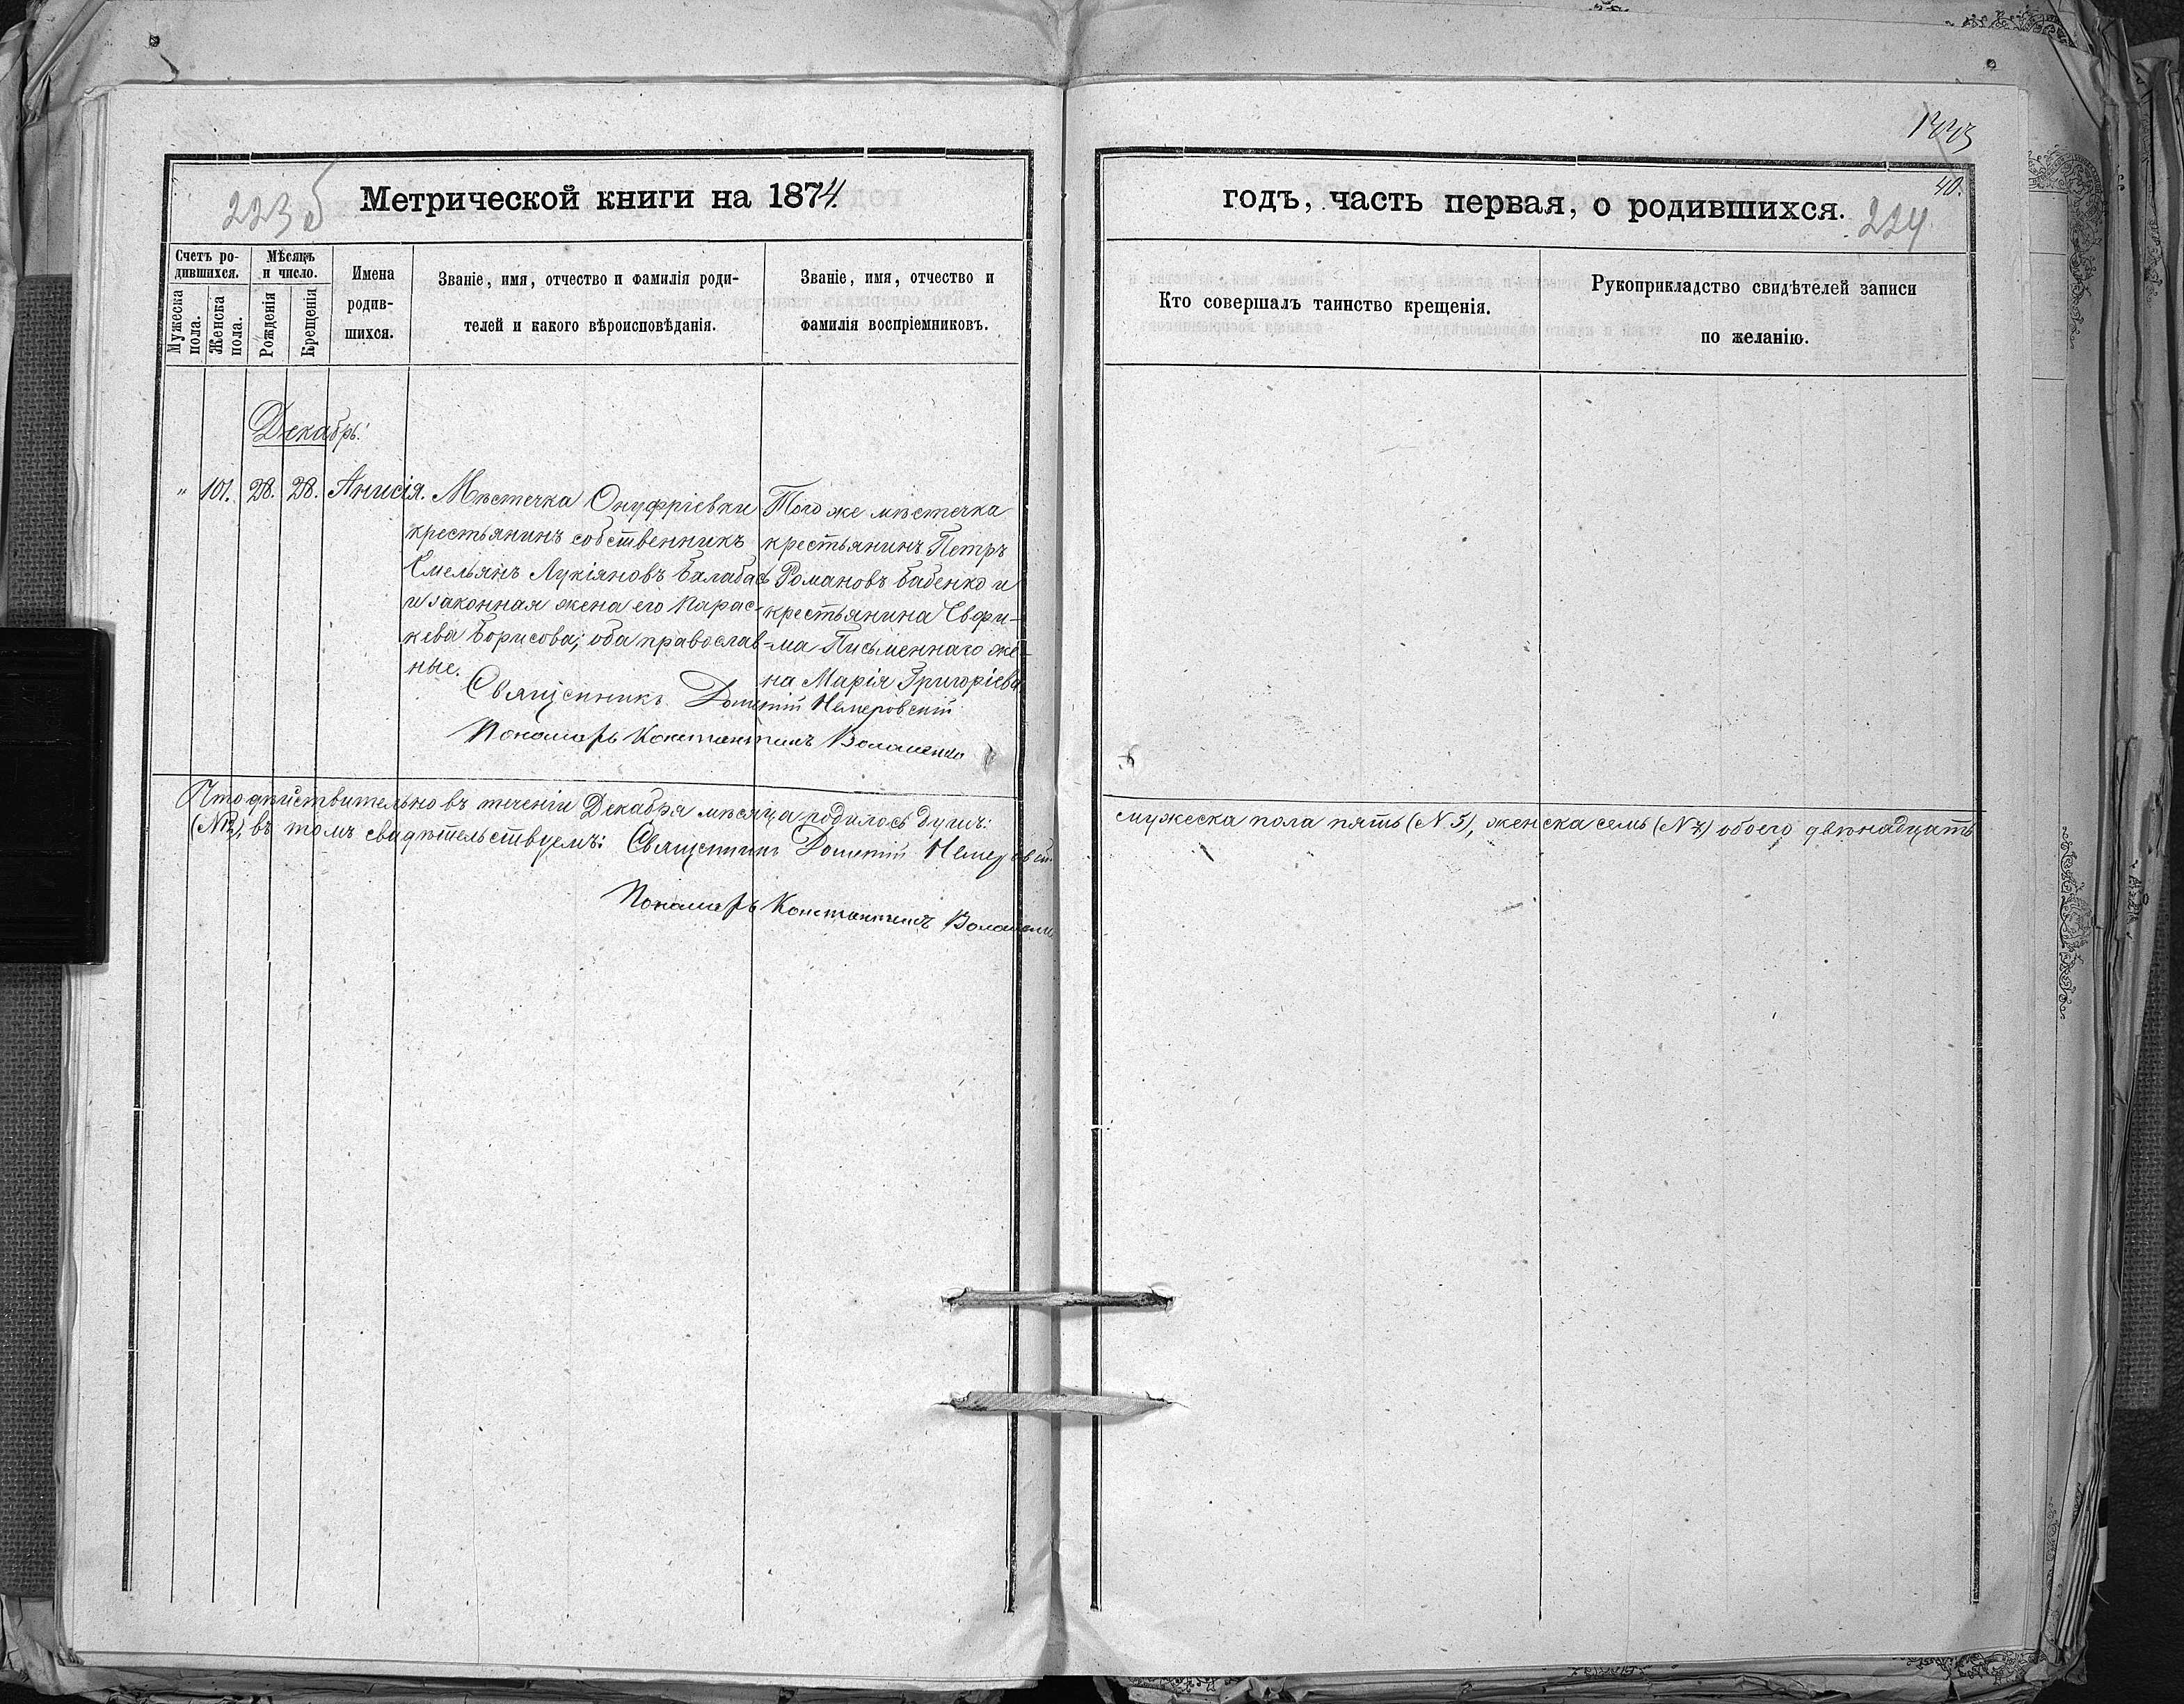 223 б
Метрической книги на 1874.
Счетъ родившихся.
Мужеска пола.
Женска пола.
Мѣсяцъ и число.
Рожденія
Крещенія
Имена родившихся.
Званіе, имя, отчество и фамилія роди-
телей и какого вѣроисповѣданія.
Званіе, имя, отчество и
фамилія воспріемниковъ.
Декабрь.
" 101. 28. 28. Анисія.
Мѣстечка Онуфріевки
крестьянинъ собственникъ
Емельянъ Лукіяновъ Балабась
и законная жена его Парас-
кева Борисова; оба православ-
ные.
Того же мѣстечка
крестьянинъ Петръ
Романовъ Бабенко и
крестьянина Евфи-
ма Письменнаго же-
на Марія Григоріева
Священникъ Дометій Немеровскій
Пономарь Константинъ
Что дѣйствительно въ теченіи Декабря мѣсяца родилось душъ:
(№ 12), въ томъ свидѣтельствуемъ: Священникъ Дометій
Пономарь Константинъ
40.
годъ, часть первая, о родившихся.
224
Кто совершалъ таинство крещенія.
Рукоприкладство свидѣтелей записи
по желанію.
мужеска пола пять (№ 5), женска семь (№ 7) обоего двѣнадцать